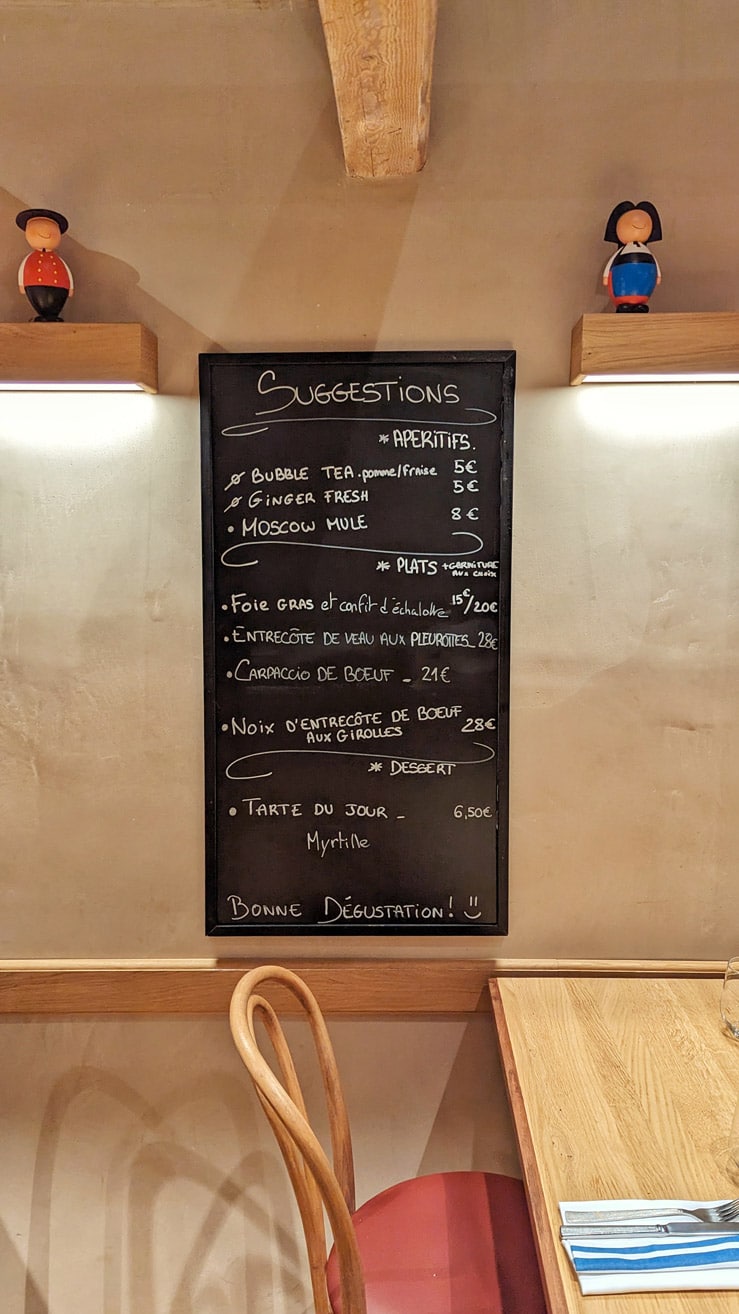 SUGGESTIONS
* APERITIFS.
ø BUBBLE TEA.pomme/fraise 5€
ø GINGER FRESH 5€
• MOSCOW MULE 8€
* PLATS +GARNITURE
AUX CHOIX
• FOIE GRAS et confit d'échalotte 15€/20€
• ENTRECÔTE DE VEAU AUX PLEUROTTES_ 28€
• CARPACCIO DE BOEUF _ 21€
• NOIX D'ENTRECÔTE DE BOEUF
AUX GIROLLES 28€
* DESSERT
• TARTE DU JOUR _ 6,50€
Myrtille
BONNE DÉGUSTATION! :)